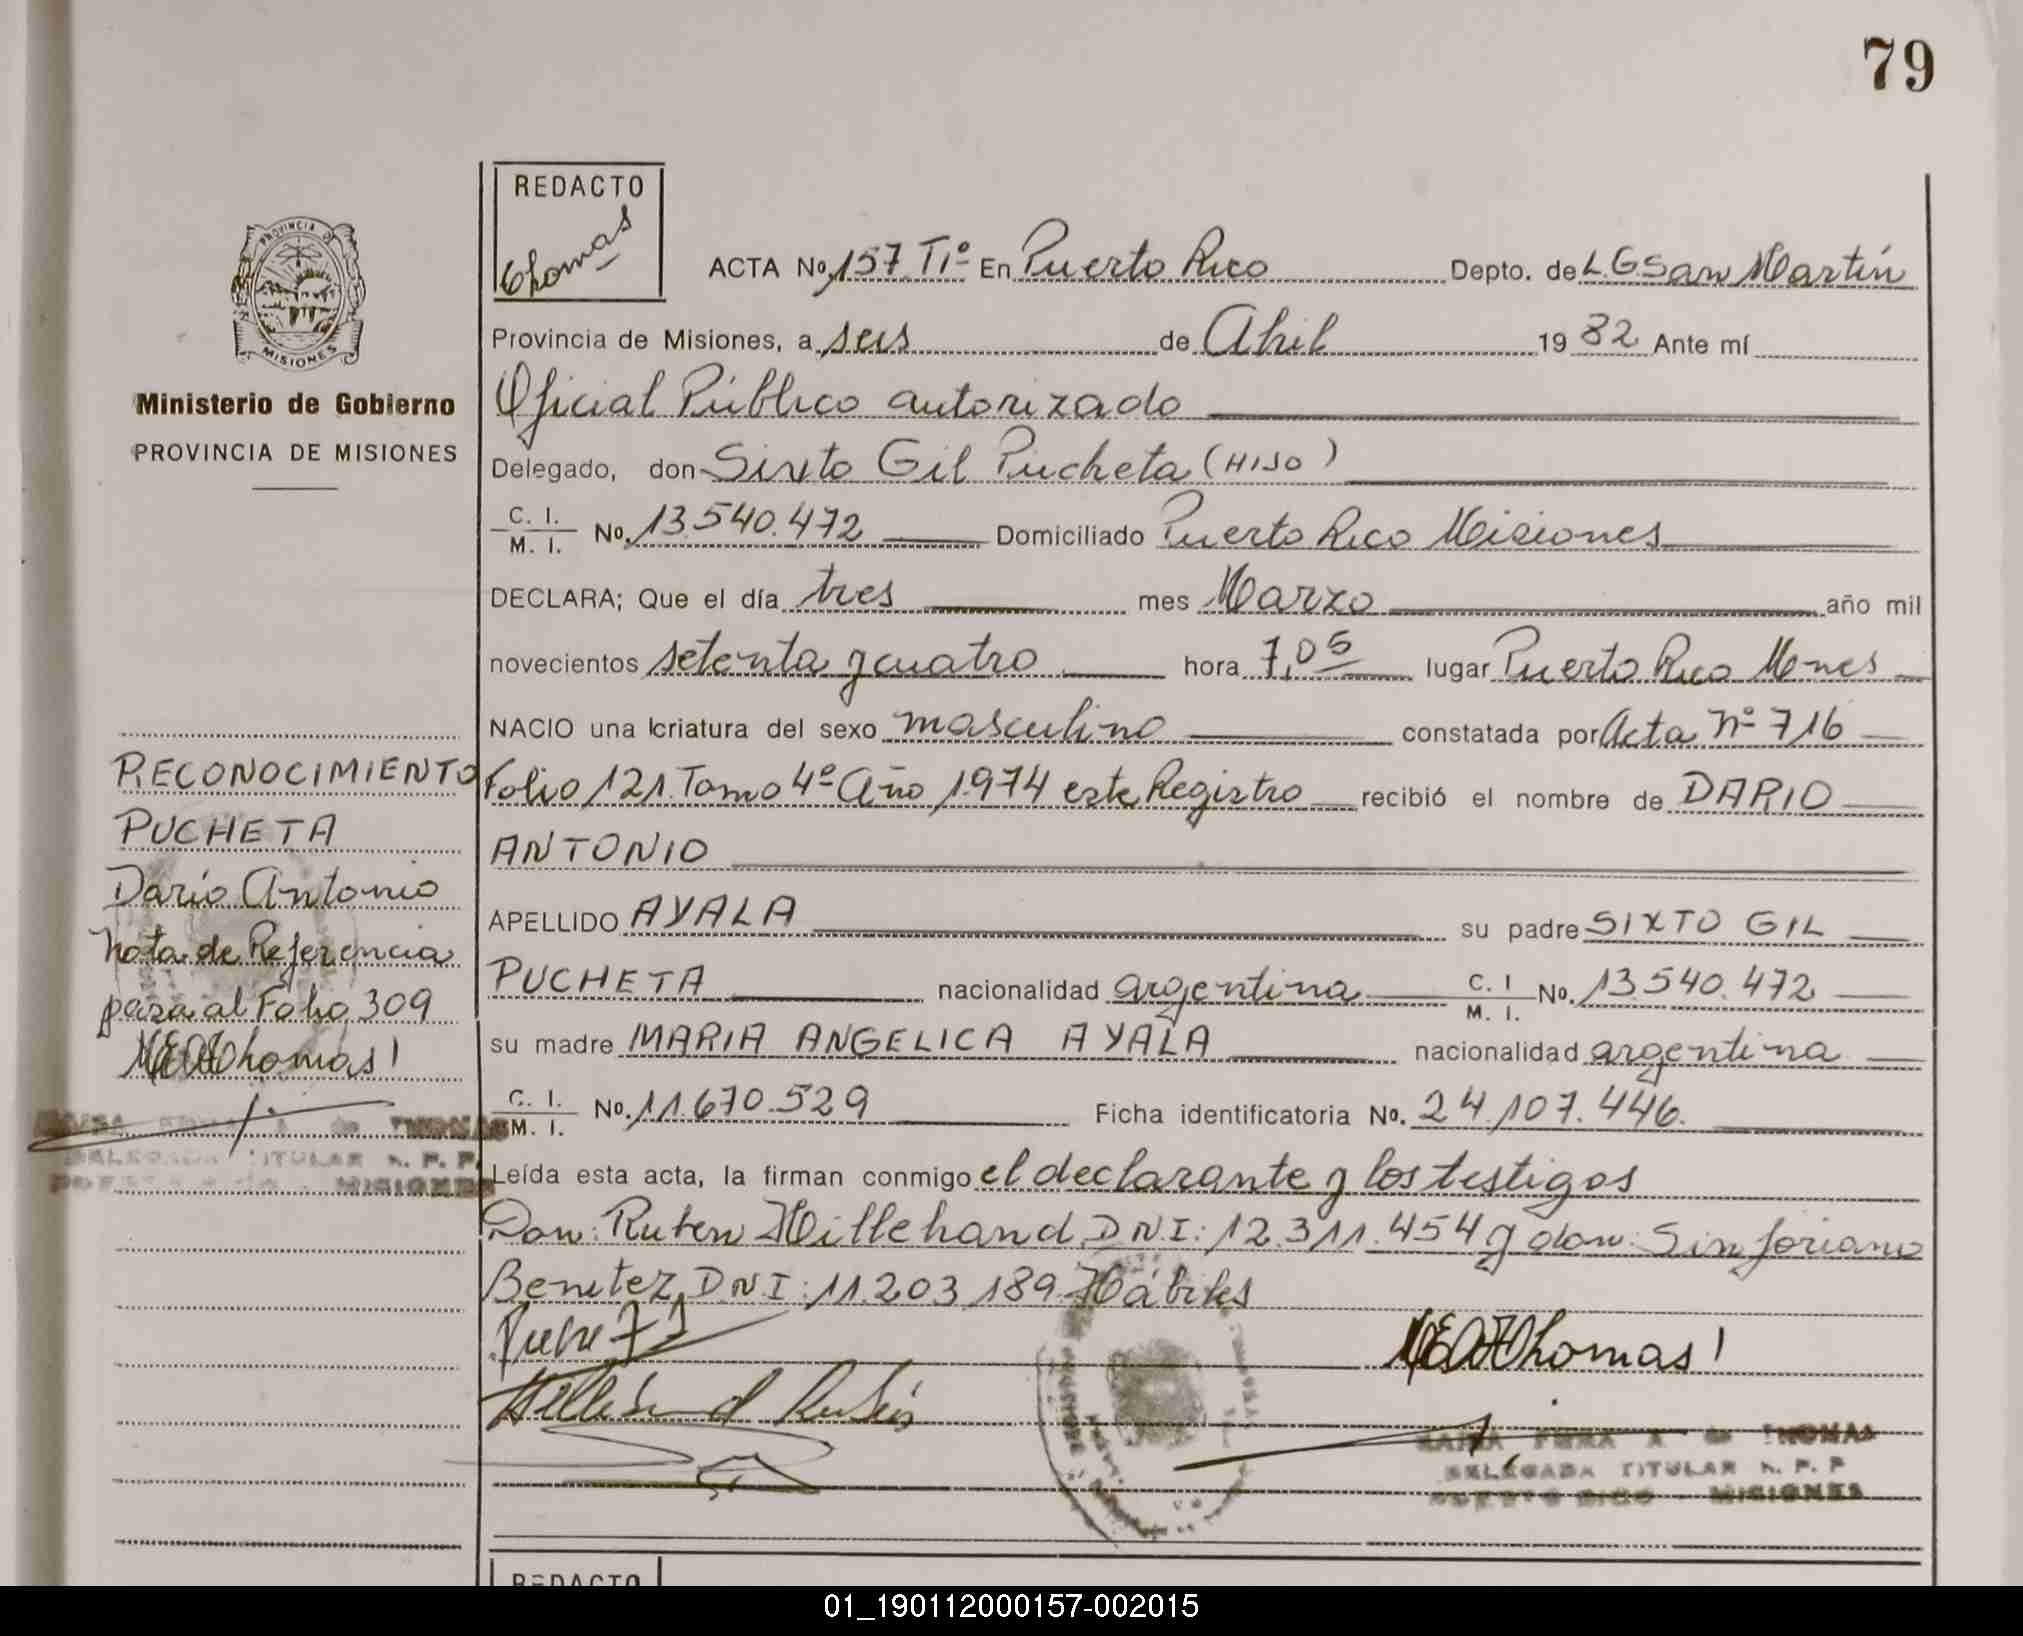 79
REDACTO
Thomas
PROVINCIA DE
MISIONES
Ministerio de Gobierno
PROVINCIA DE MISIONES
ACTA No. 157 Tiº En Puerto Rico Depto. de L.G.San Martín
Provincia de Misiones, a seis de Abril 1982 Ante mí
Oficial Público autorizado
Delegado, don Sixto Gil Pucheta (HIJO)
C. I. M. I. No. 13.540.472 Domiciliado Puerto Rico Misiones
DECLARA; Que el día tres mes Marzo año mil
novecientos setenta y cuatro hora 7,05 lugar Puerto Rico Mnes
NACIO una criatura del sexo masculino constatada por Acta Nº 716
Folio 121. Tomo 4º Año 1974 este Registro recibió el nombre de DARIO
ANTONIO
APELLIDO AYALA su padre SIXTO GIL
PUCHETA nacionalidad argentina C. I M. I. No. 13.540.472
su madre MARIA ANGELICA AYALA nacionalidad argentina
C. I. M. I. No. 11.670.529 Ficha identificatoria No. 24.107.446.
Leída esta acta, la firman conmigo el declarante y los testigos
Don: Ruben Hillebrand, DNI: 12.311.454 y don: Sinforiano
Benitez, DNI: 11.203.189 Hábiles
Hillebrand Rubén
Thomas
DELEGADA TITULAR R. P. P
PUERTO RICO - MISIONES
RECONOCIMIENTO
PUCHETA
Dario Antonio
Nota de Referencia
pasa al Folio 309
Thomas
de THOMAS
DELEGADA TITULAR R. P. P.
MISIONES
REDACTO
01_190112000157-002015